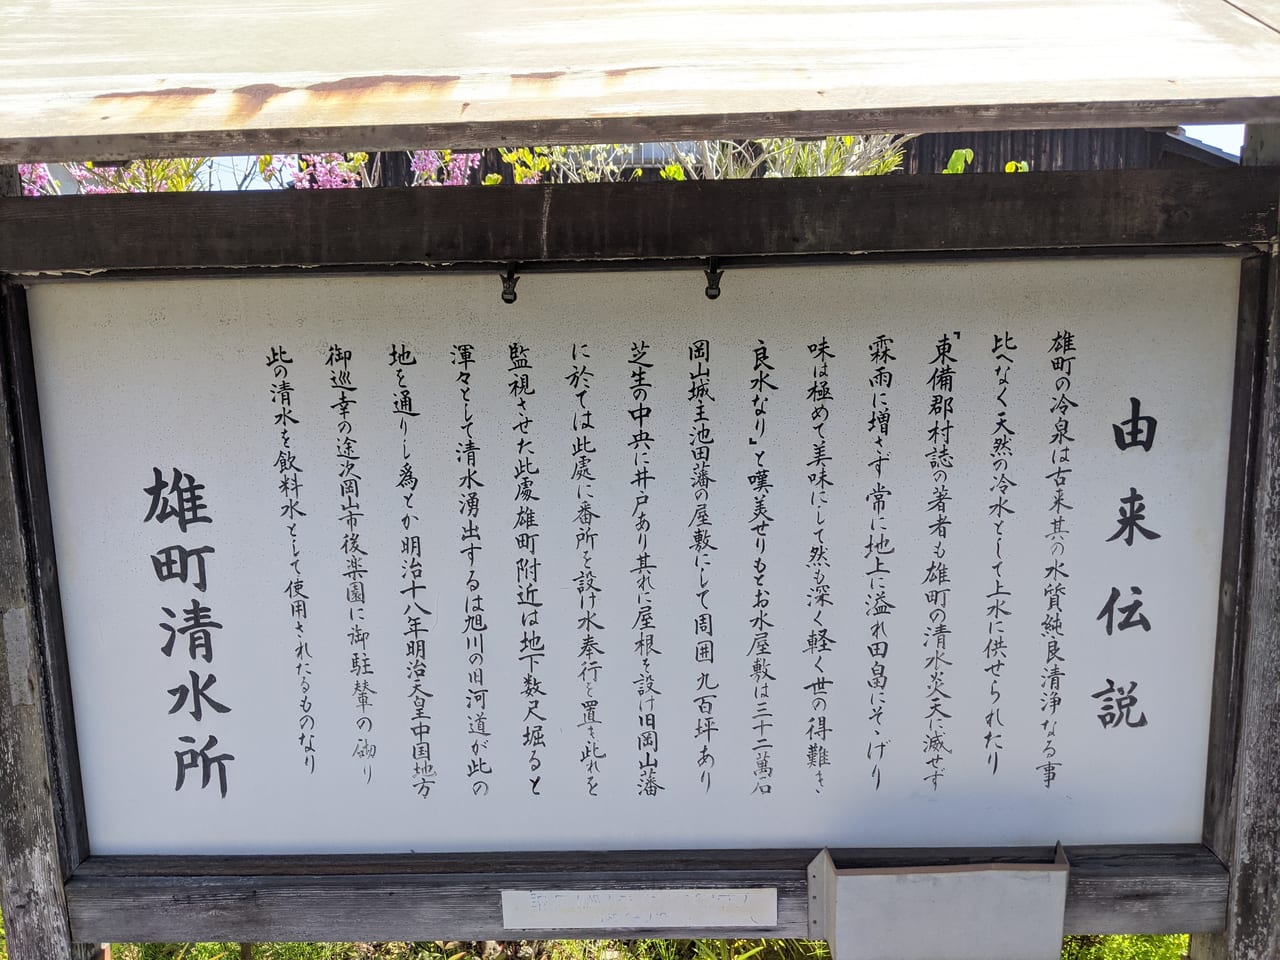 由来伝説
雄町の冷泉は古来其の水質純良清浄なる事
比へなく天然の冷水として上水に供せられたり
「東備郡村誌の著者も雄町の清水炎天に滅せず
霖雨に増さず常に地上に溢れ田畠にそゝげり
味は極めて美味にして然も深く軽く世の得難き
良水なり」と嘆美せりもとお水屋敷は三十二萬石
岡山城主池田藩の屋敷にして周囲九百坪あり
芝生の中央に井戸あり其れに屋根を設け旧岡山藩
に於ては此處に番所を設け水奉行を置き此れを
監視させた此處雄町附近は地下数尺堀ると
渾々として清水湧出するは旭川の旧河道が此の
地を通りし為とか明治十八年明治天皇中国地方
御巡幸の途次岡山市後楽園に御駐輦の砌り
此の清水を飲料水として使用されたるものなり
雄町清水所